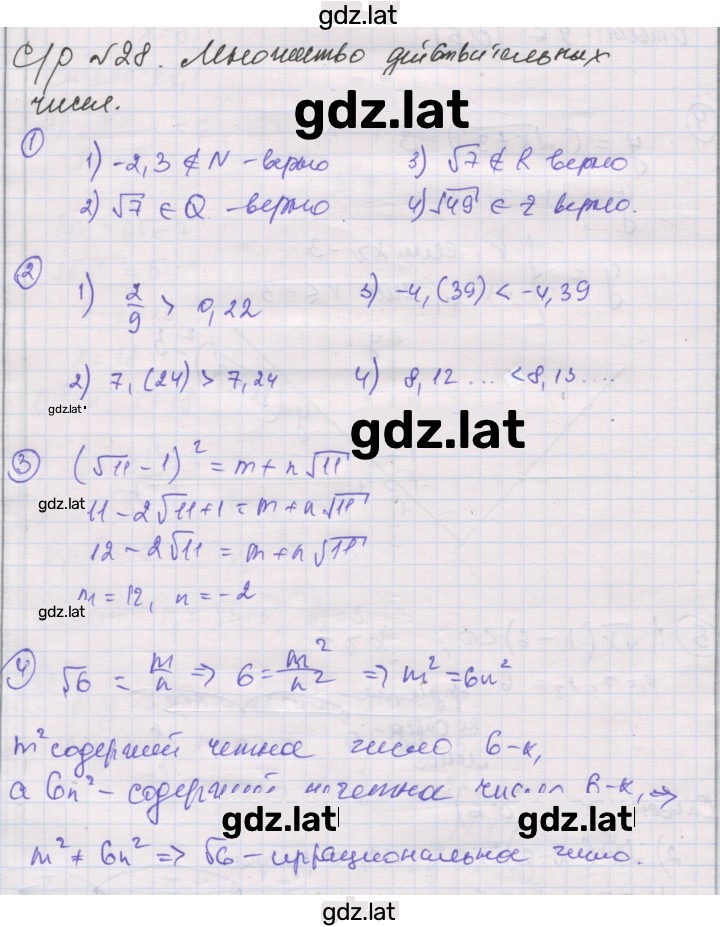 gdz.lat
С/р №28. Множество действительных
чисел.
gdz.lat
① 1) -2,3 ∉ N - верно 3) √7 ∉ R верно
2) √7 ∈ Q - верно 4) √49 ∈ Z верно.
② 1) 2/9 > 0,22 3) -4,(39) < -4,39
2) 7,(24) > 7,24 4) 8,12... < 8,13....
gdz.lat
gdz.lat
③ (√11 - 1)² = m + n√11
gdz.lat
11 - 2√11 + 1 = m + n√11
12 - 2√11 = m + n√11
m = 12, n = -2
gdz.lat
④ √6 = m/n ⇒ 6 = m²/n² ⇒ m² = 6n²
m² содержит четное число 6-к,
а 6n² - содержит нечетное число 6-к, ⇒
gdz.lat gdz.lat
m² ≠ 6n² ⇒ √6 - иррациональное число.
gdz.lat